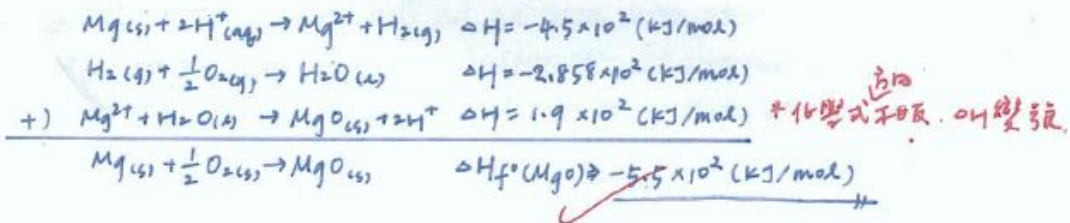 Mg(s) + 2H⁺(aq) → Mg²⁺ + H₂(g) ΔH = -4.5×10² (kJ/mol)
H₂(g) + ½O₂(g) → H₂O(l) ΔH = -2.858×10² (kJ/mol)
+) Mg²⁺ + H₂O(l) → MgO(s) + 2H⁺ ΔH = 1.9×10² (kJ/mol) *化學式方向相反. ΔH變號.
Mg(s) + ½O₂(s) → MgO(s) ΔHf°(MgO) ⇒ -5.5×10² (kJ/mol)